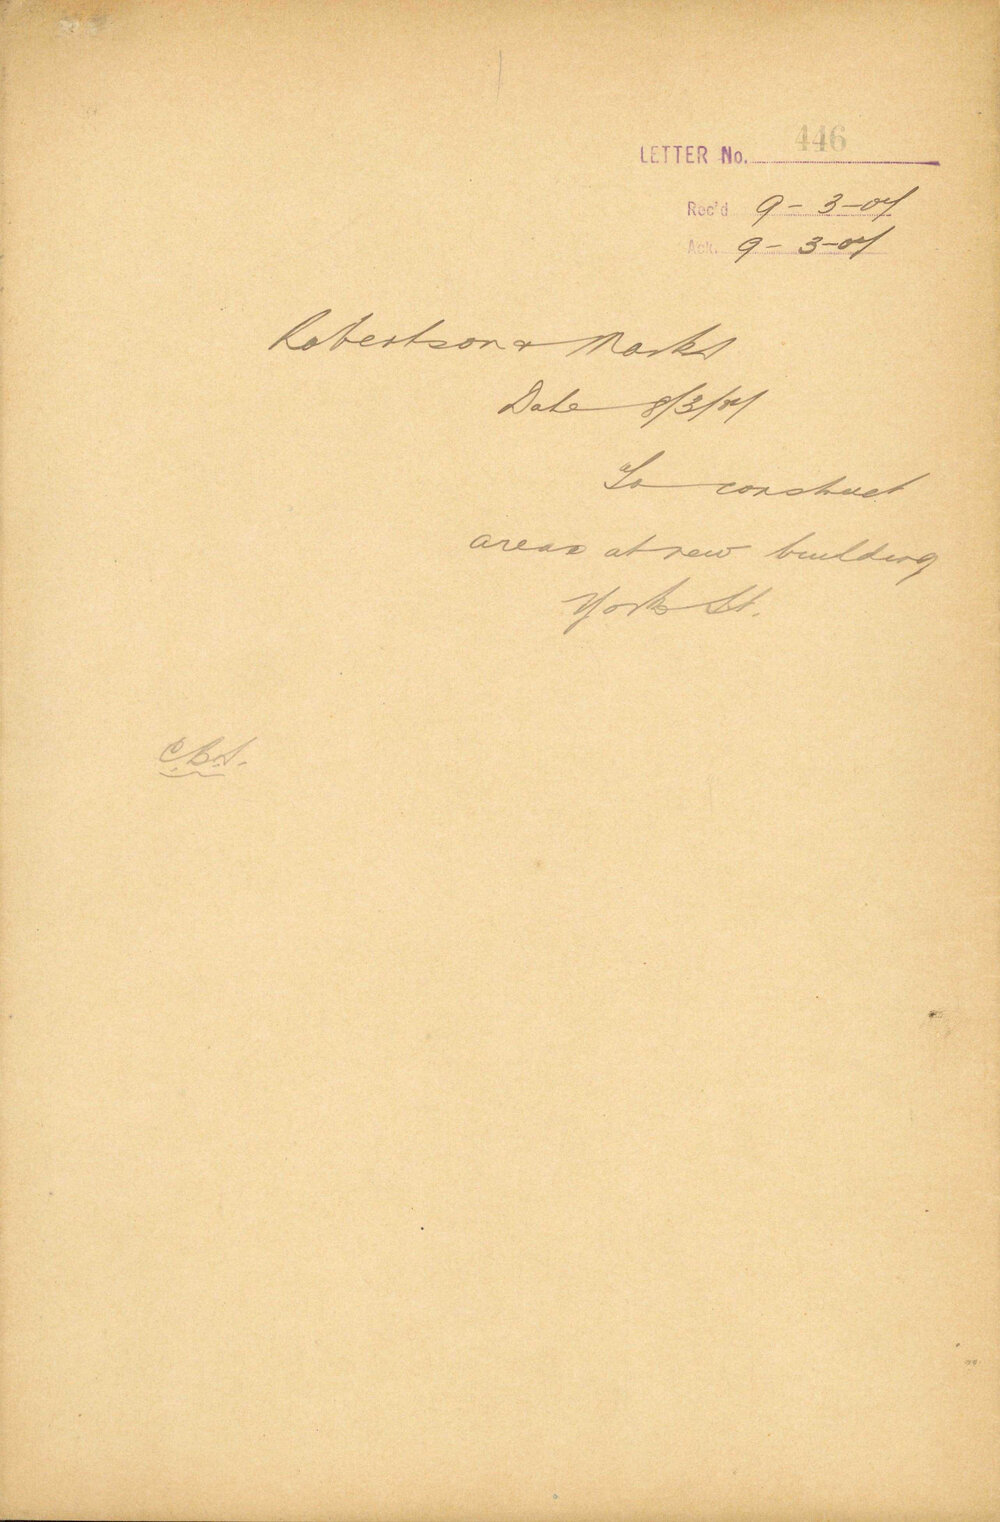 LETTER No. 446
Rec'd 9-3-04
Ack. 9-3-04
Robertson & Marks
Date 8/3/04
To construct
areas at new building
York St.
C.B.S.